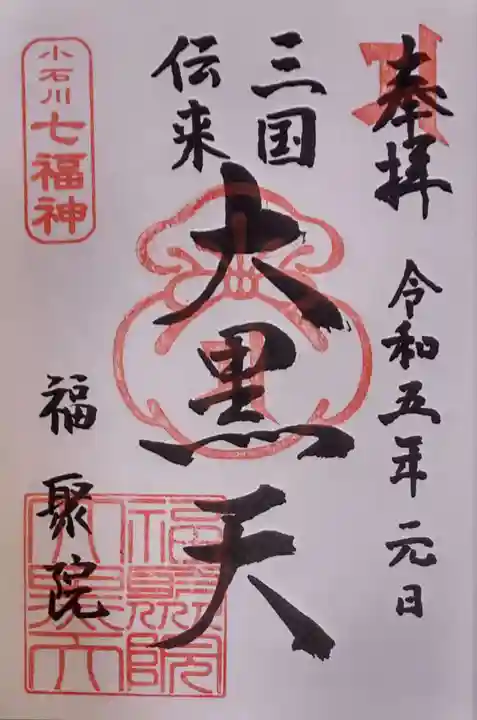 奉拝
令和五年元日
三国
伝来
大黒天
小石川
七福神
福聚院
福聚院
大黒天